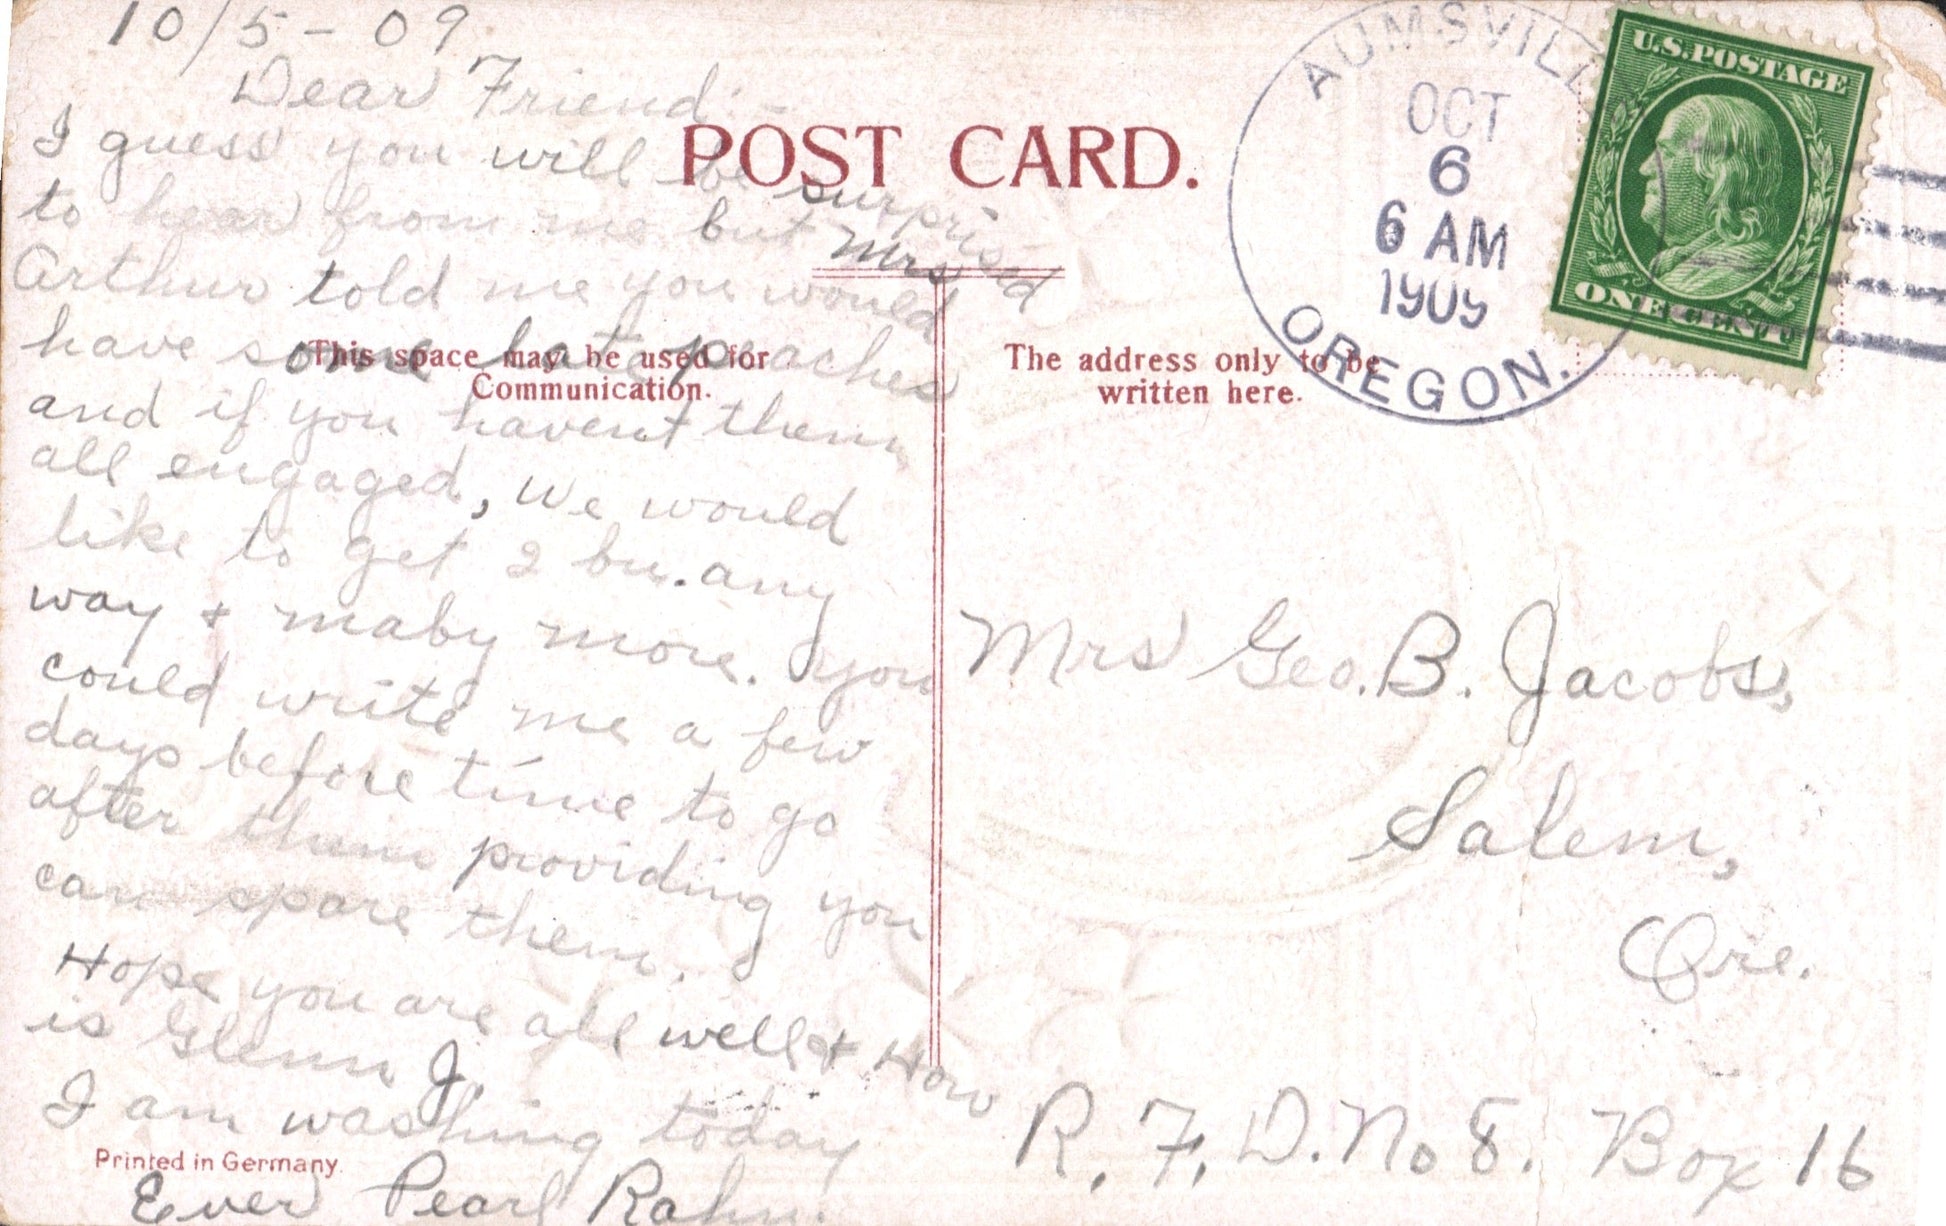 10/5-09
Dear Friend:-
I guess you will be surprised
to hear from me but Mrs
Arthur told me you would
have some late peaches
and if you havent them
all engaged, We would
like to get 2 bu. any
way + maby more. You
could write me a few
days before time to go
after them providing you
can spare them.
Hope you are all well & How
is Glenn J.
I am washing today
Ever Pearl Rahn.
POST CARD.
This space may be used for
Communication.
Printed in Germany.
The address only to be
written here.
AUMSVILL
OCT
6
6 AM
1909
OREGON.
U.S. POSTAGE
ONE CENT
Mrs Geo. B. Jacobs,
Salem,
Ore.
R. F. D. No 8. Box 16